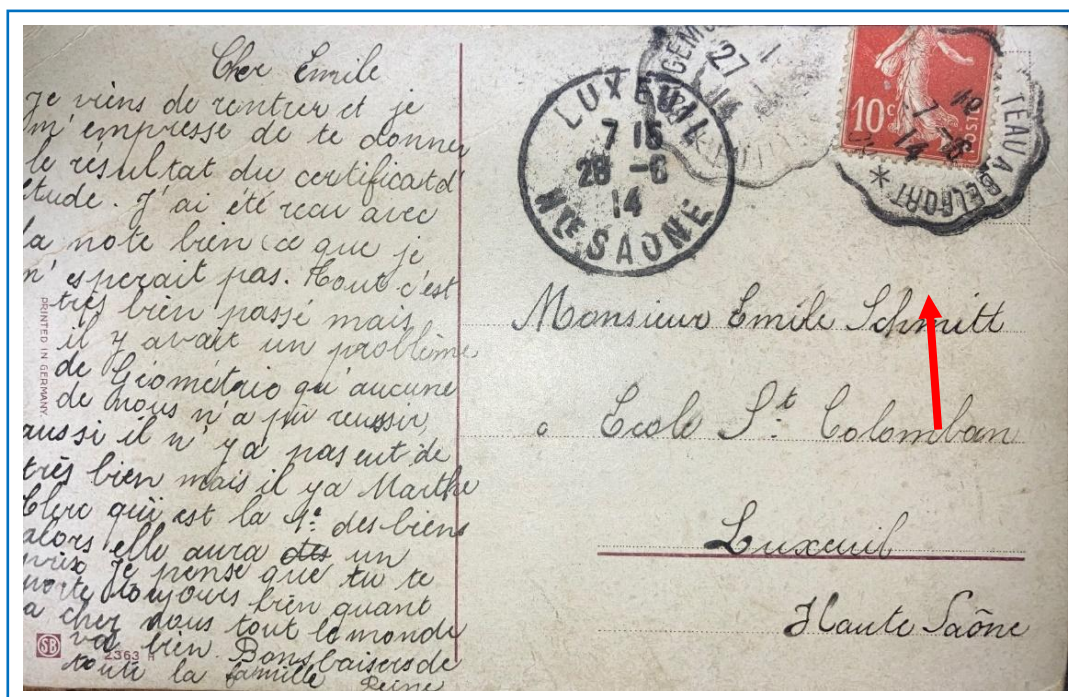 Cher Emile
je viens de rentrer et je
m'empresse de te donner
le résultat du certificat d'
étude. J'ai été reçu avec
la note bien (ce que je
n'esperait pas. Tout c'est
très bien passé mais
il y avait un problème
de Géométrie qu'aucune
de nous n'a pu reussir
aussi il n'y a pas eut de
très bien mais il ya Marthe
Clerc qui est la 1e des biens
alors elle aura des un
prix Je pense que tu te
porte toujours bien quant
a chez nous tout le monde
va bien. Bons baisers de
toute la famille Reine
PRINTED IN GERMANY.
SB
2363
LUXEUIL
7 15
28 -6
14
HTE SAONE
27
14
10c
POSTES
TEAU A BELFORT
14
Monsieur Emile Schmitt
Ecole St. Colomban
Luxeuil
Haute Saône